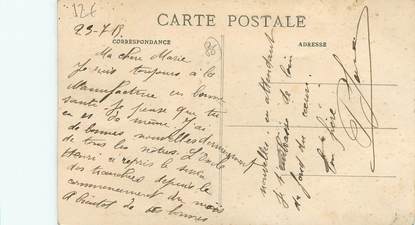 12€
CARTE POSTALE
23-7-15
CORRESPONDANCE
86
ADRESSE
Ma chère Marie
Je suis toujours à la
Manufacture en bonne
santé. Je pense que tu
en es de même. J'ai
de bonnes nouvelles
de tous les nôtres. L'oncle
Henri a repris le
des tranchées depuis le
commencement du mois
A bientôt de bonnes
nouvelles en attendant
Je t'embrasse de loin
du fond du cœur.
Ton père